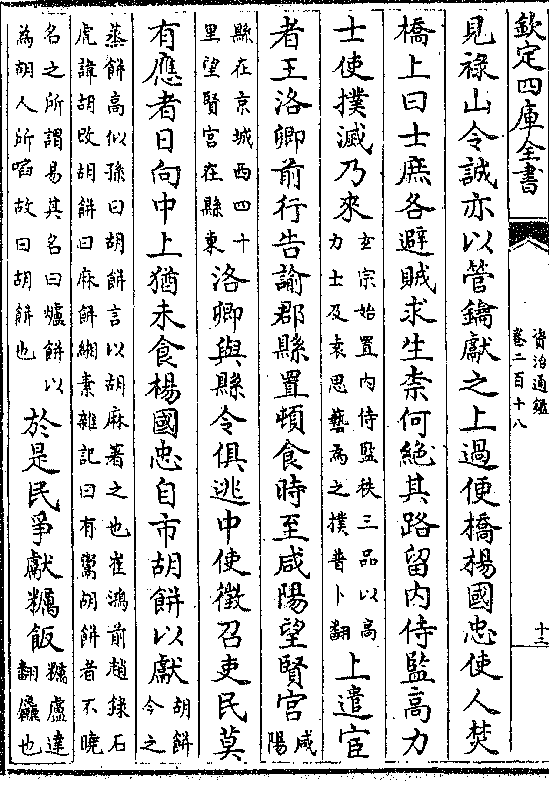 欽定四庫全書
資治通鑑
卷二百十八
十三
見祿山令誠亦以管鑰獻之上過便橋楊國忠使人焚
橋上曰士庶各避賊求生柰何絶其路留内侍監高力
士使撲滅乃來
玄宗始置内侍監秩三品以高
力士及袁思藝為之撲普卜翻
上遣宦
者王洛卿前行告諭郡縣置頓食時至咸陽望賢宮
咸
陽
縣在京城西四十
里望賢宮在縣東
洛卿與縣令俱逃中使徵召吏民莫
有應者日向中上猶未食楊國忠自市胡餅以獻
胡餅
今之
蒸餅高似孫曰胡餅言以胡麻著之也崔鴻前趙錄石
虎諱胡改胡餅曰麻餅緗素雜記曰有鬻胡餅者不曉
名之所謂易其名曰爐餅以
為胡人所啗故曰胡餅也
於是民爭獻糲飯
糲盧達
翻麤也